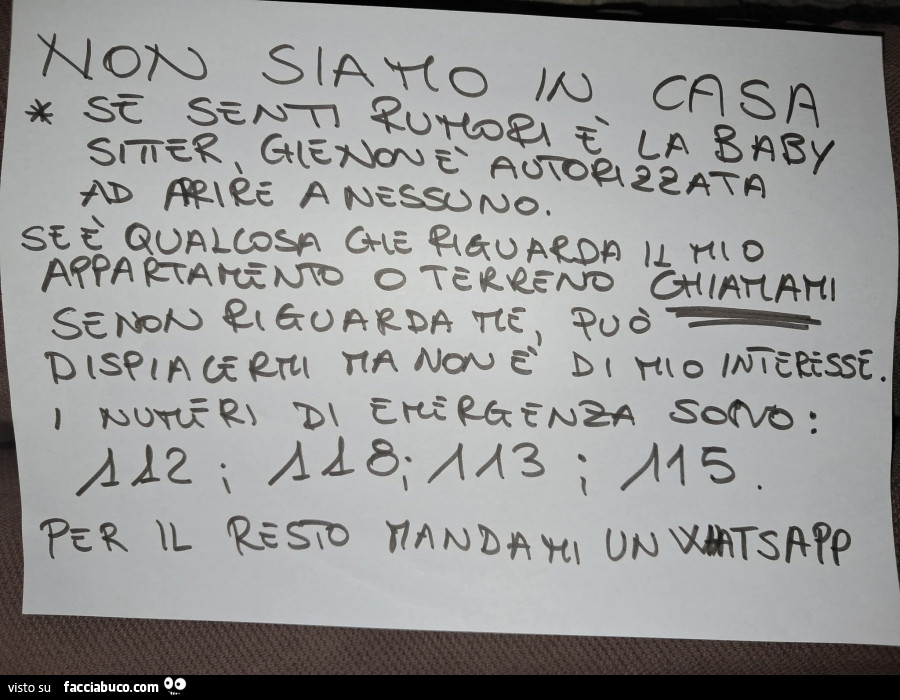 NON SIAMO IN CASA
* SE SENTI RUMORI È LA BABY
SITTER, CHE NON È AUTORIZZATA
AD APRIRE A NESSUNO.
SE È QUALCOSA CHE RIGUARDA IL MIO
APPARTAMENTO O TERRENO CHIAMAMI
SE NON RIGUARDA ME, PUÒ
DISPIACERMI MA NON È DI MIO INTERESSE.
I NUMERI DI EMERGENZA SONO:
112 ; 118 ; 113 ; 115 .
PER IL RESTO MANDAMI UN WHATSAPP
visto su facciabuco.com